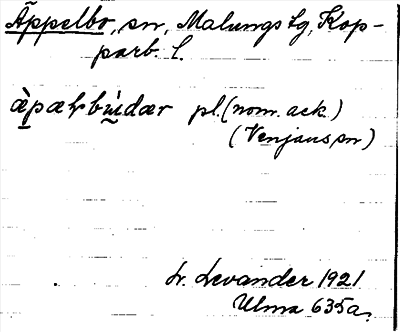 Äppelbo, sn, Malungs tg, Kop-
parb. l.
pl. (nom. ack.)
(Venjans sn)
L. Levander 1921
Ulma 635a.